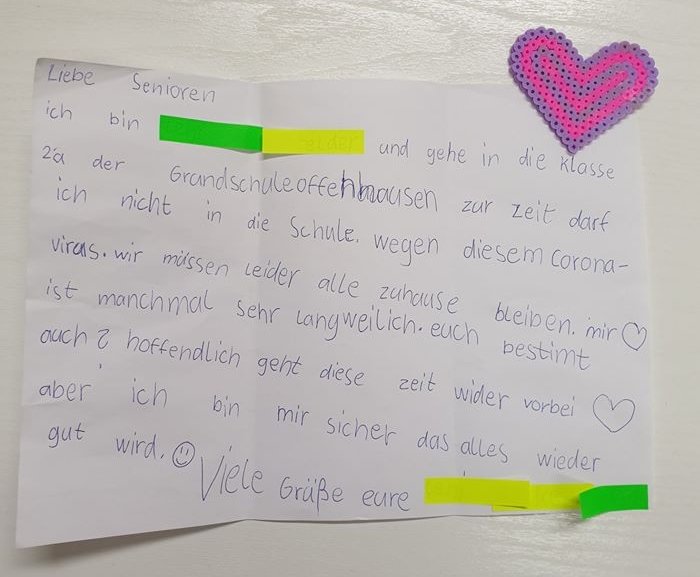 Liebe Senioren
ich bin und gehe in die Klasse
2a der Grundschule offenhhausen zur Zeit darf
ich nicht in die Schule. wegen diesem Corona-
virus. wir müssen leider alle zuhause bleiben. mir
ist manchmal sehr langweilich. euch bestimt
auch? hoffendlich geht diese zeit wider vorbei
aber ich bin mir sicher das alles wieder
gut wird.
Viele Grüße eure